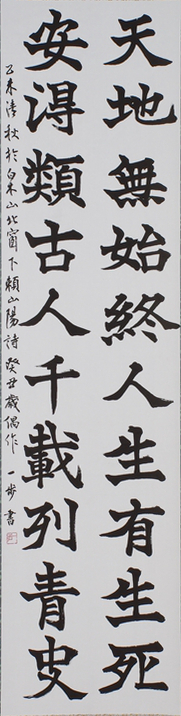 天地無始終人生有生死
安得類古人千載列青史
乙未清秋於白木山北窗下頼山陽詩癸丑歲偶作 一步書